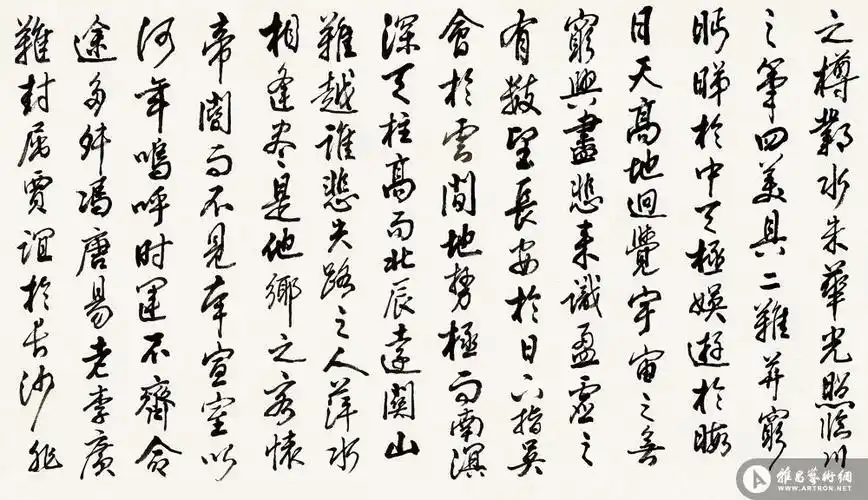 之樽鄴水朱華光照臨川
之筆四美具二難并窮
眄睇於中天極娛遊於暇
日天高地迥覺宇宙之無
窮興盡悲来識盈虛之
有數望長安於日下指吳
會於雲間地勢極而南溟
深天柱高而北辰遠關山
難越誰悲失路之人萍水
相逢尽是他鄉之客懷
帝閽而不見奉宣室以
何年嗚呼时運不齊命
途多舛馮唐易老李廣
難封屈賈誼於長沙非
雅昌藝術網
WWW.ARTRON.NET